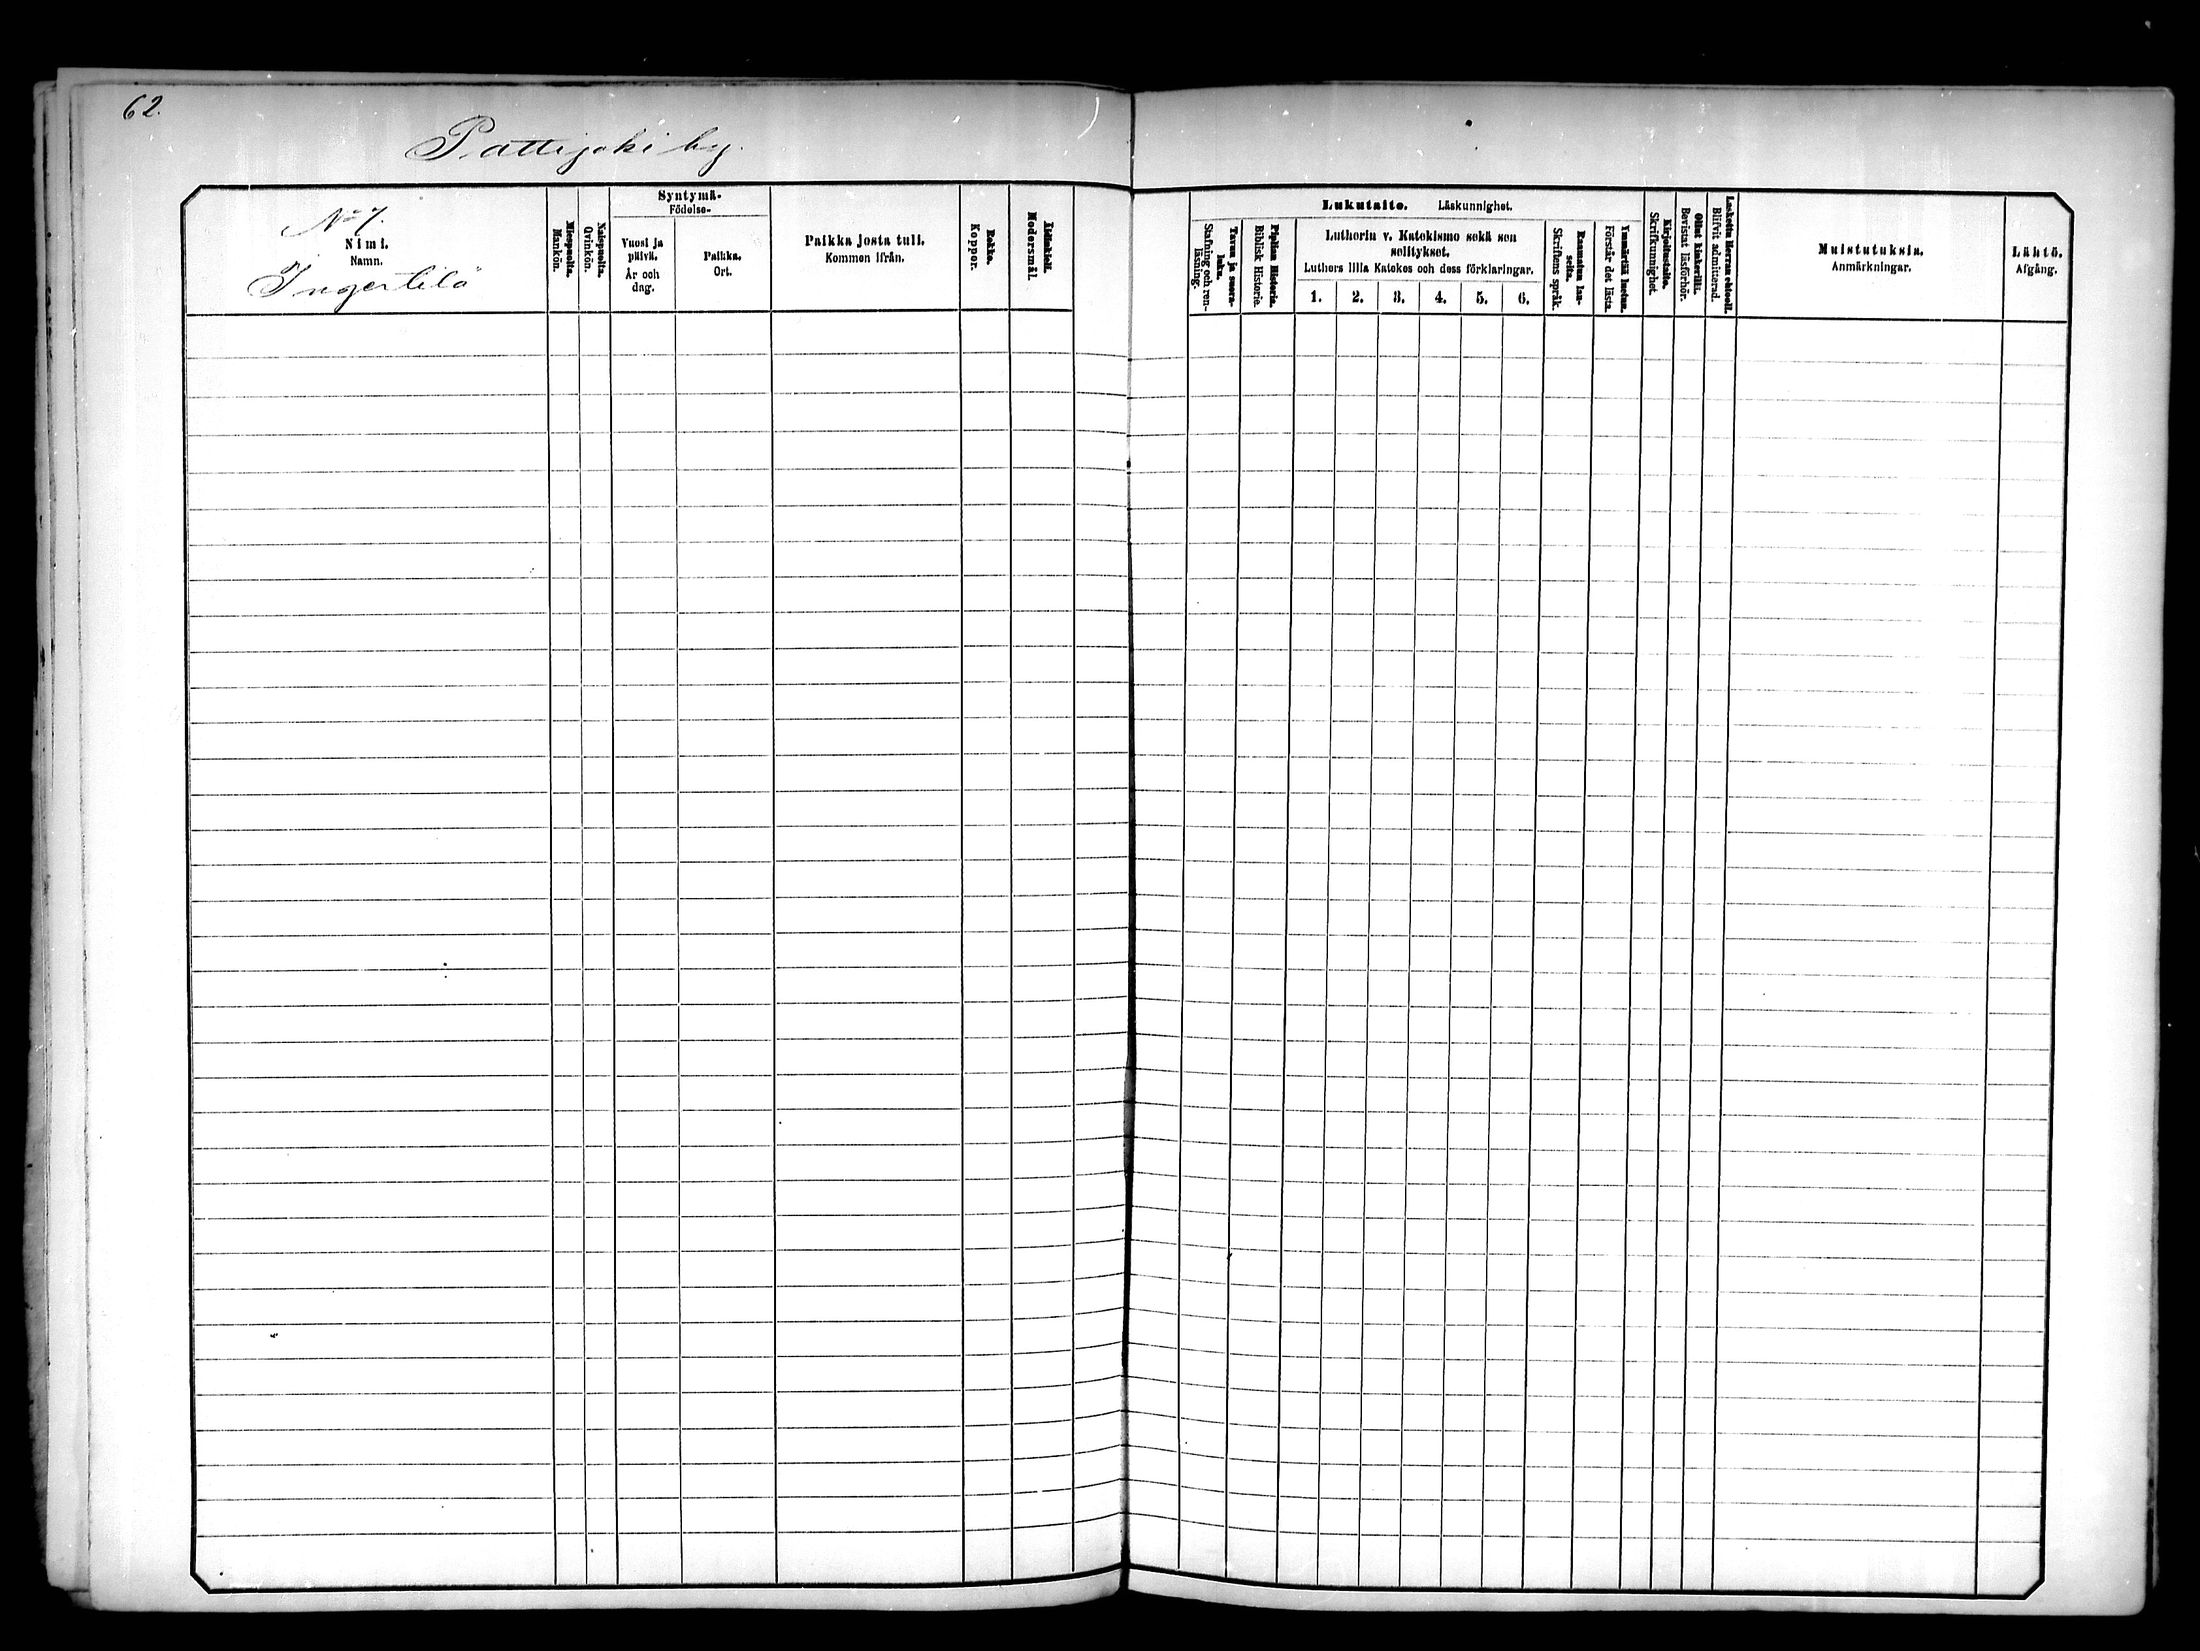 62.
Pattijoki by.
No 7.
Nimi.
Namn.
Ingertilä
Miespuolta.
Mankön.
Naispuolta.
Qvinkön.
Syntymä-
Födelse-
Vuosi ja
päivä.
År och
dag.
Paikka.
Ort.
Paikka josta tuli.
Kommen ifrån.
Rokko.
Koppor.
Äidinkieli.
Modersmål
Lukutaito. Läskunnighet.
Tavuu ja suora-
luku.
Stafning och ren-
läsning.
Piplian Historia.
Biblisk Historie.
Lutherin v. Katekismo sekä sen
selitykset.
Luthers lilla Katekes och dess förklaringar.
1. 2. 3. 4. 5. 6.
Raamatun lau-
seita.
Skriftens språk.
Ymmärtää luetun.
Förstår det lästa.
Kirjoitustaito.
Skrifkunnighet.
Ollut kinkerillä.
Bevistat läsförhör.
Laskettu Herran ehtool.
Blifvit admitterad.
Muistutuksia.
Anmärkningar.
Lähtö.
Afgång.